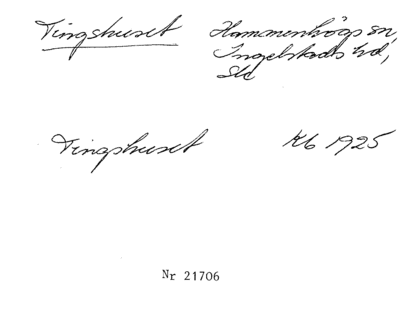 Tingshuset Hammenhögs sn,
Ingelstads hd,
Sk
Tingshuset Kb 1925
Nr 21706